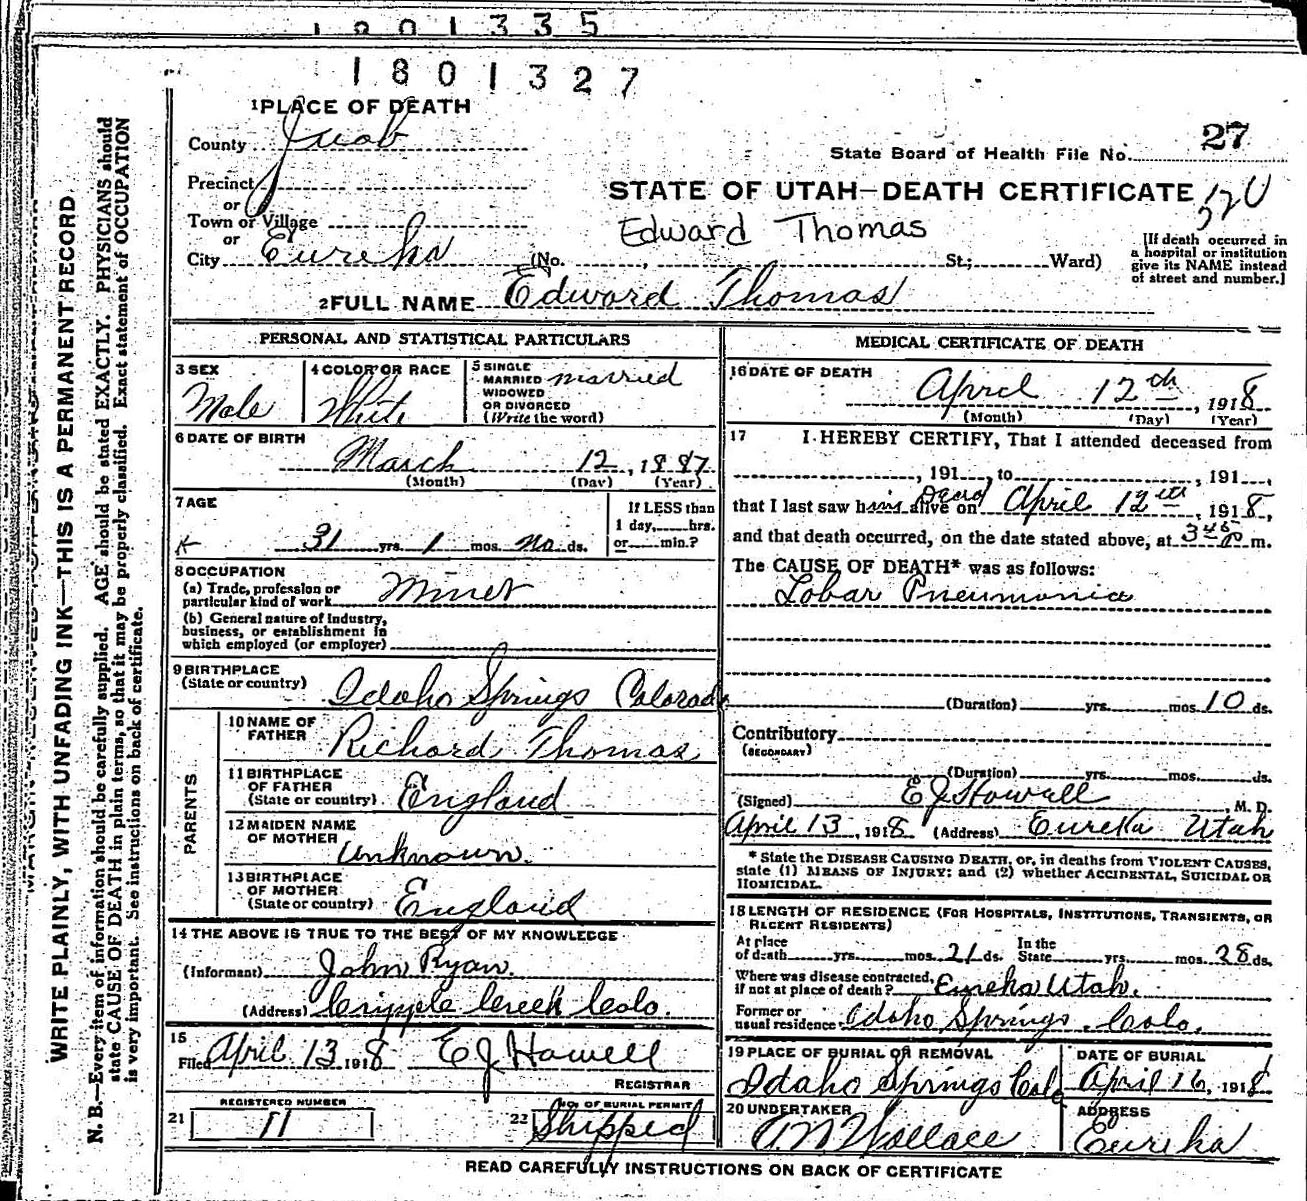 1801335
1801327
1 PLACE OF DEATH
County Juab
State Board of Health File No. 27
Precinct
or
STATE OF UTAH—DEATH CERTIFICATE 520
Town or Village
or
Edward Thomas
City Eureka (No. , St.; Ward)
[If death occurred in
a hospital or institution
give its NAME instead
of street and number.]
2 FULL NAME Edward Thomas
PERSONAL AND STATISTICAL PARTICULARS
3 SEX
Male
4 COLOR OR RACE
White
5 SINGLE
MARRIED married
WIDOWED
OR DIVORCED
(Write the word)
6 DATE OF BIRTH
March 12, 1887
(Month) (Day) (Year)
7 AGE
31 yrs. 1 mos. no ds.
If LESS than
1 day, hrs.
or min.?
8 OCCUPATION
(a) Trade, profession or
particular kind of work Miner
(b) General nature of Industry,
business, or establishment in
which employed (or employer)
9 BIRTHPLACE
(State or country) Idaho Springs Colorado
PARENTS
10 NAME OF
FATHER Richard Thomas
11 BIRTHPLACE
OF FATHER
(State or country) England
12 MAIDEN NAME
OF MOTHER
Unknown.
13 BIRTHPLACE
OF MOTHER
(State or country) England
14 THE ABOVE IS TRUE TO THE BEST OF MY KNOWLEDGE
(Informant) John Ryan.
(Address) Cripple Creek Colo.
15
Filed April 13 1918 E J Howell
REGISTRAR
21 REGISTERED NUMBER
11
22 NO. OF BURIAL PERMIT
Shipped
MEDICAL CERTIFICATE OF DEATH
16 DATE OF DEATH
April 12th, 1918
(Month) (Day) (Year)
17 I HEREBY CERTIFY, That I attended deceased from
, 191 , to , 191 ,
that I last saw him alive on Dead April 12th, 1918,
and that death occurred, on the date stated above, at 3 45 P m.
The CAUSE OF DEATH* was as follows:
Lobar Pneumonia
(Duration) yrs. mos. 10 ds.
Contributory
(SECONDARY)
(Duration) yrs. mos. ds.
(Signed) E J Howell, M. D.
April 13, 1918 (Address) Eureka Utah
* State the DISEASE CAUSING DEATH, or, in deaths from VIOLENT CAUSES,
state (1) MEANS OF INJURY; and (2) whether ACCIDENTAL, SUICIDAL OR
HOMICIDAL.
18 LENGTH OF RESIDENCE (FOR HOSPITALS, INSTITUTIONS, TRANSIENTS, OR
RECENT RESIDENTS)
At place
of death yrs. mos. 21 ds.
In the
State yrs. mos. 28 ds.
Where was disease contracted,
if not at place of death? Eureka Utah.
Former or
usual residence Idaho Springs, Colo.
19 PLACE OF BURIAL OR REMOVAL
Idaho Springs Colo
DATE OF BURIAL
April 16, 1918
20 UNDERTAKER
A M Wallace
ADDRESS
Eureka
READ CAREFULLY INSTRUCTIONS ON BACK OF CERTIFICATE
WRITE PLAINLY, WITH UNFADING INK—THIS IS A PERMANENT RECORD
N. B.—Every item of information should be carefully supplied. AGE should be stated EXACTLY. PHYSICIANS should
state CAUSE OF DEATH in plain terms, so that it may be properly classified. Exact statement of OCCUPATION
is very important. See instructions on back of certificate.